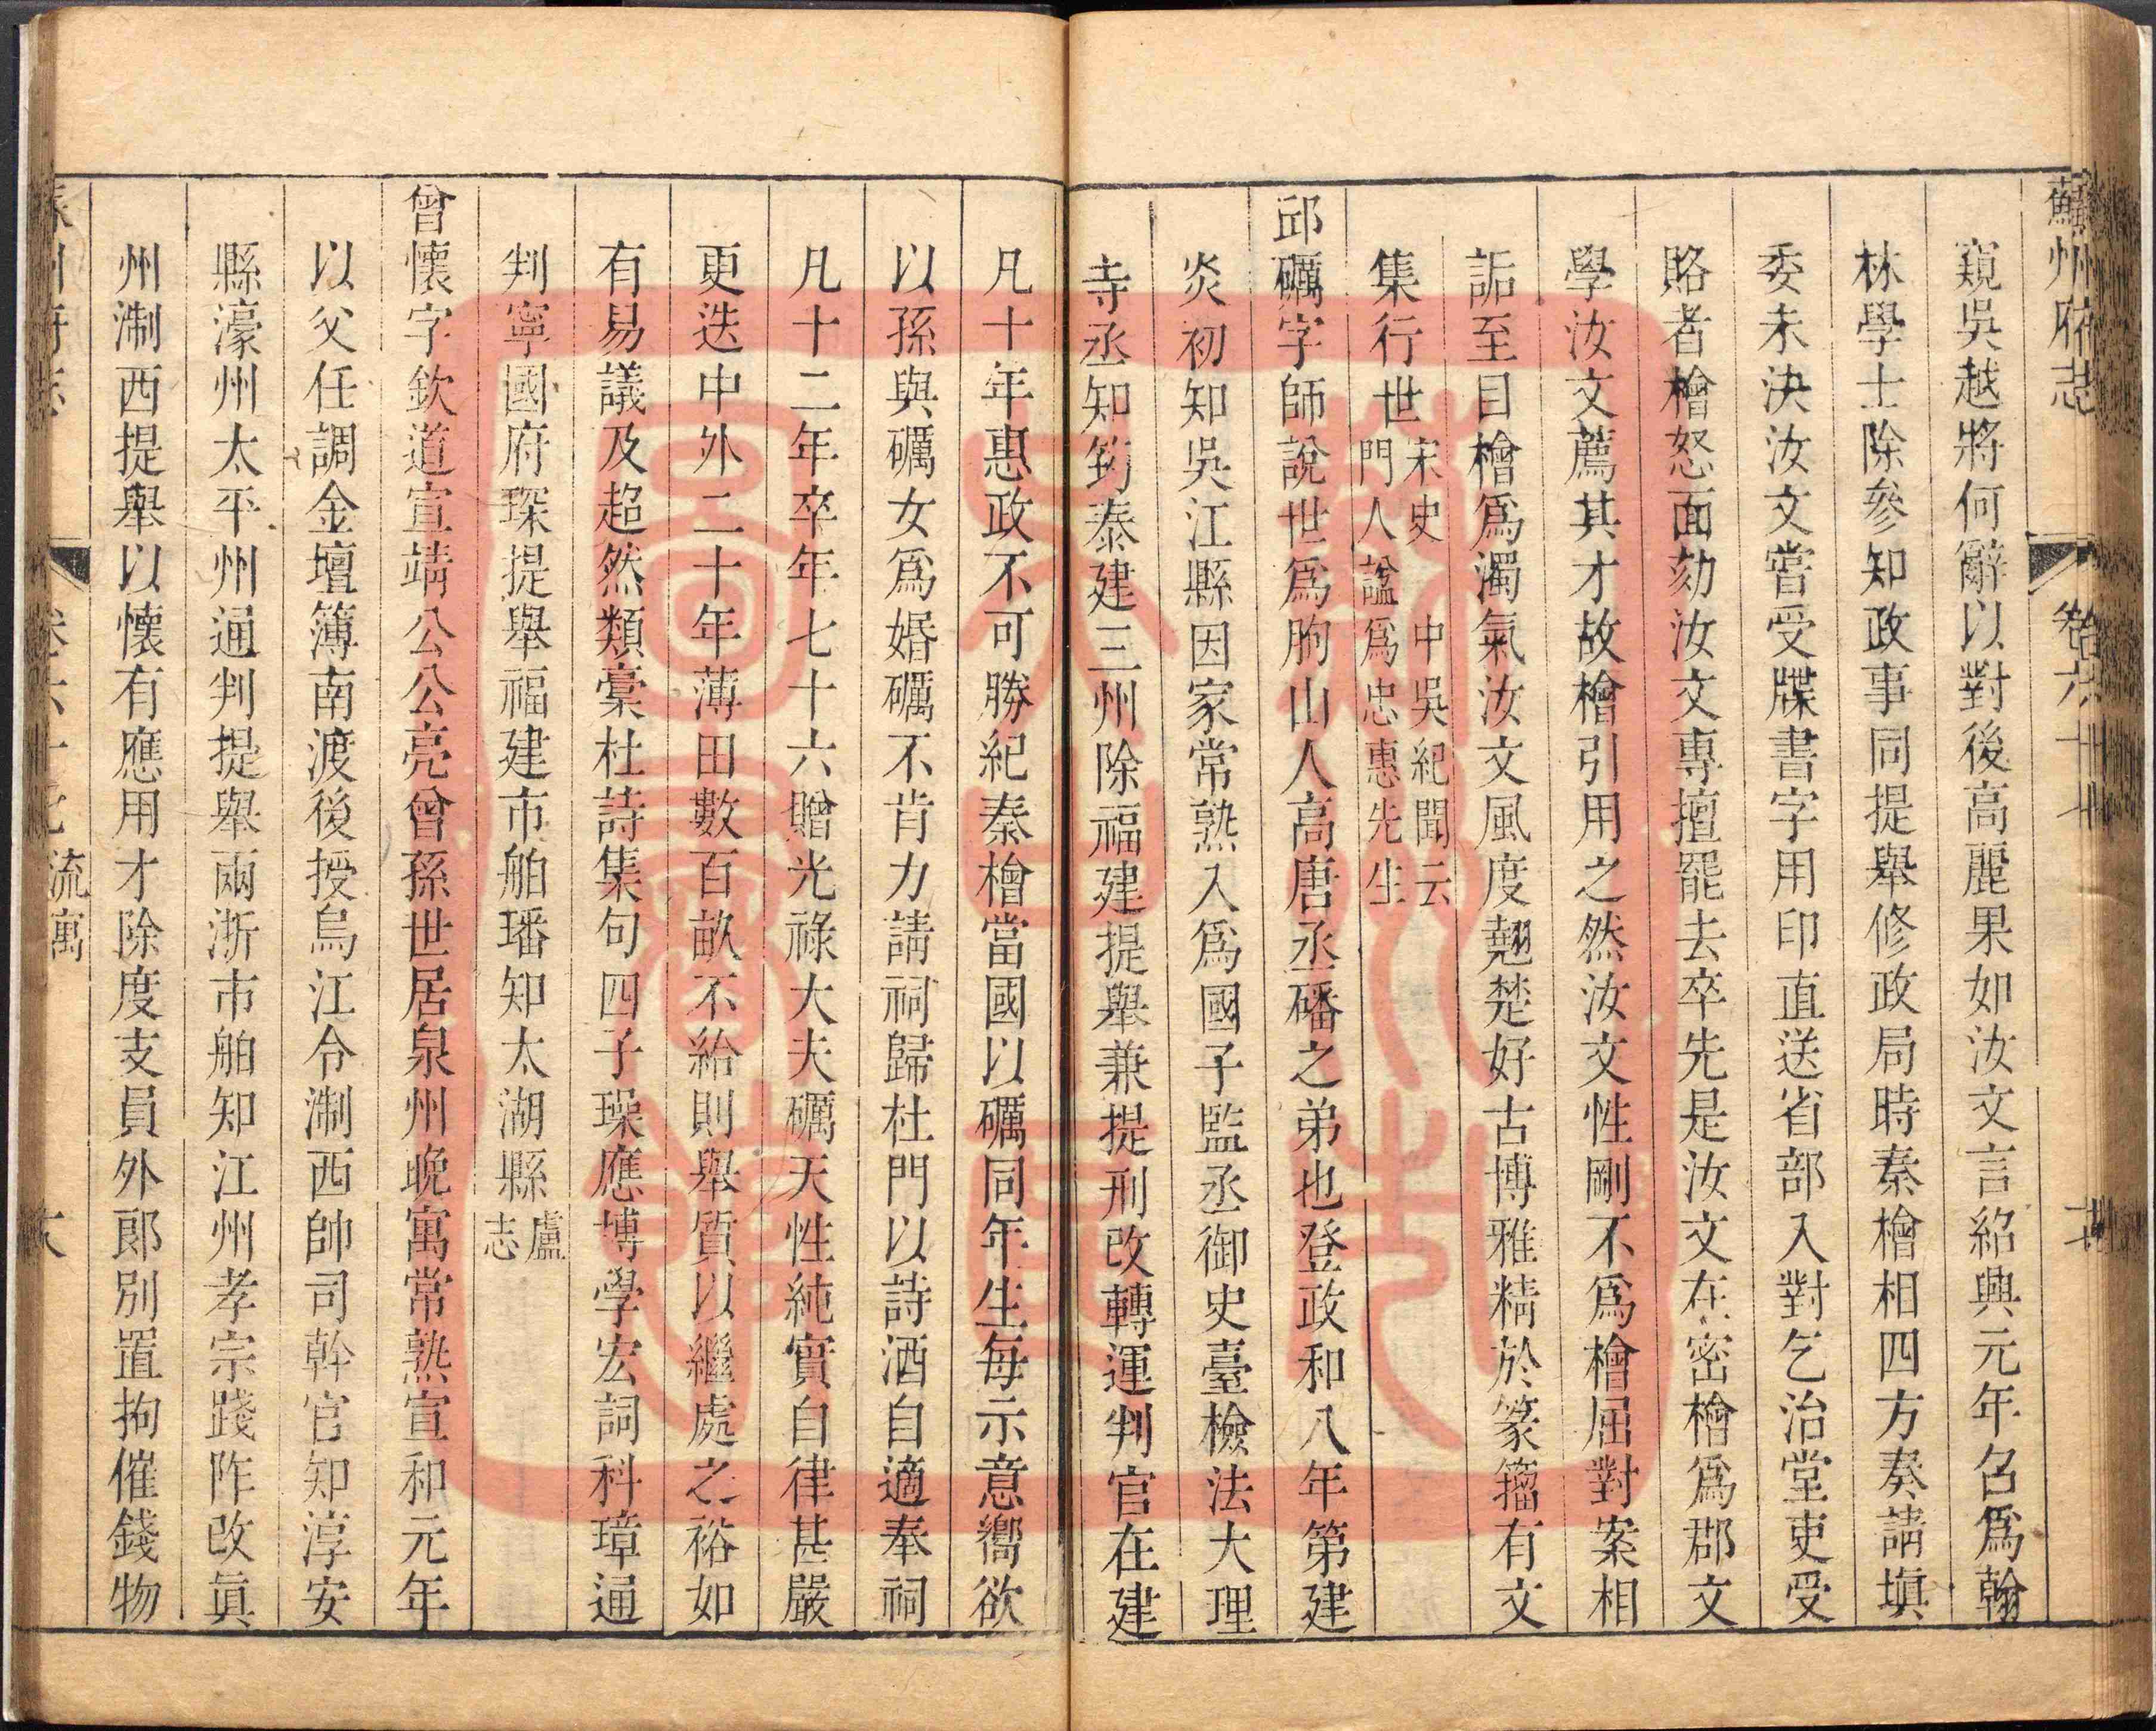 蘇州府志
卷六十七
窺吳越將何辭以對後高麗果如汝文言紹興元年召爲翰
林學士除參知政事同提舉修政局時秦檜相四方奏請塡
委未決汝文嘗受牒書字用印直送省部入對乞治堂吏受
賂者檜怒面劾汝文專擅罷去卒先是汝文在密檜爲郡文
學汝文薦其才故檜引用之然汝文性剛不爲檜屈對案相
詬至目檜爲濁氣汝文風度翹楚好古博雅精於篆籀有文
集行世宋史 中吳紀聞云門人諡爲忠惠先生
邱礪字師說世爲朐山人高唐丞磻之弟也登政和八年第建
炎初知吳江縣因家常熟入爲國子監丞御史臺檢法大理
寺丞知筠泰建三州除福建提舉兼提刑改轉運判官在建
凡十年惠政不可勝紀秦檜當國以礪同年生每示意嚮欲
以孫與礪女爲婚礪不肯力請祠歸杜門以詩酒自適奉祠
凡十二年卒年七十六贈光祿大夫礪天性純實自律甚嚴
更迭中外二十年薄田數百畝不給則舉質以繼處之裕如
有易議及超然類稾杜詩集句四子璪應博學宏詞科璋通
判寧國府琛提舉福建市舶璠知太湖縣盧志
曾懷字欽道宣靖公公亮曾孫世居泉州晚寓常熟宣和元年
以父任調金壇簿南渡後授烏江令淛西帥司幹官知淳安
縣濠州太平州通判提舉兩浙市舶知江州孝宗踐阼改眞
州淛西提舉以懷有應用才除度支員外郎別置拘催錢物
流寓